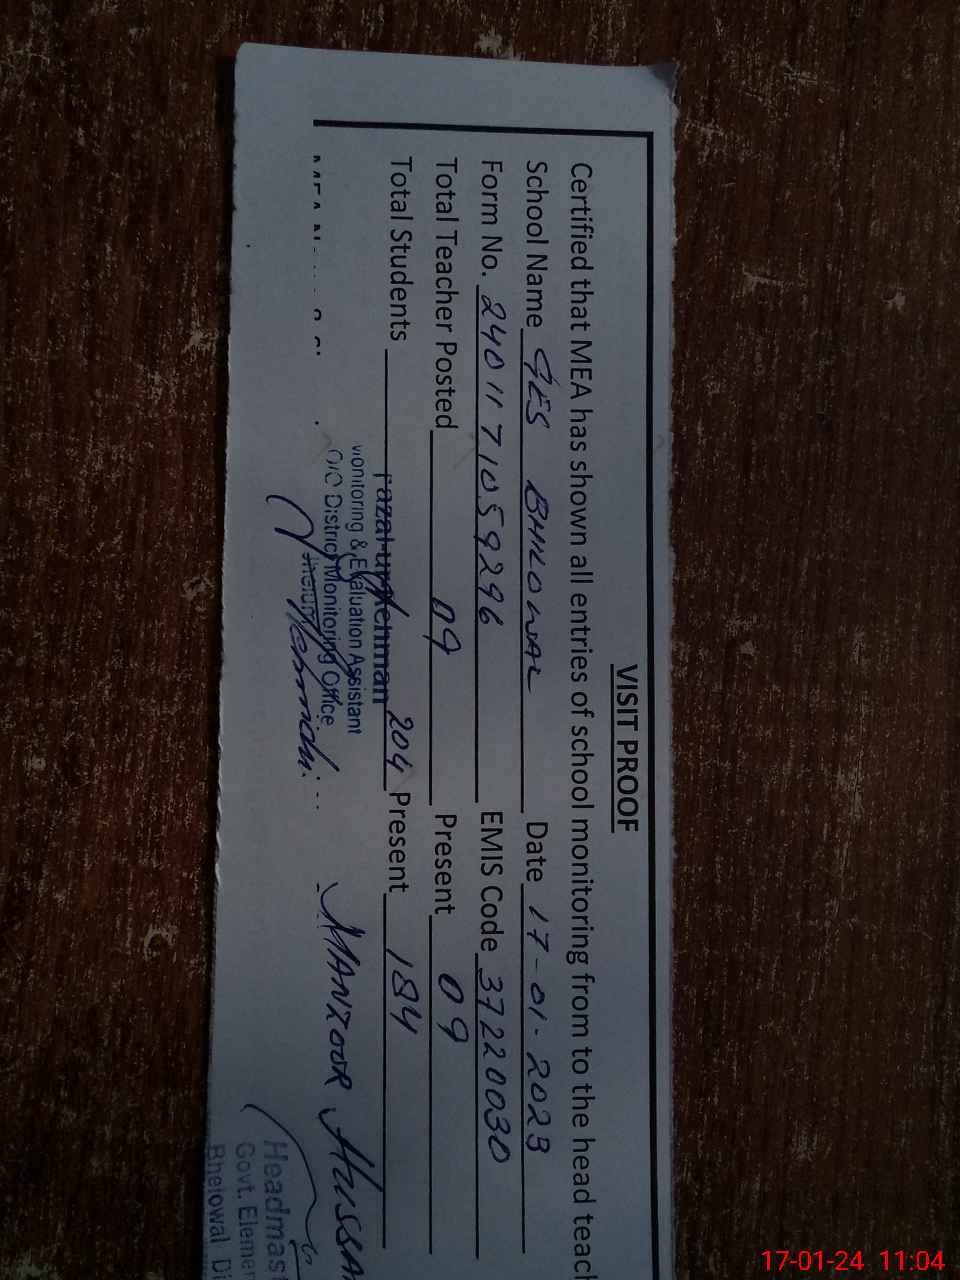 VISIT PROOF
Certified that MEA has shown all entries of school monitoring from to the head teach
School Name GES BHILOWAL Date 17-01-2023
Form No. 2401171059296 EMIS Code 37220030
Total Teacher Posted 09 Present 09
Total Students 204 Present 184
Fazal-ur-Rehman
Monitoring & Evaluation Assistant
O/O District Monitoring Office
Jhelum
MANZOOR HUSSA
Headmast
Govt. Elemen
Bhelowal Di
17-01-24 11:04